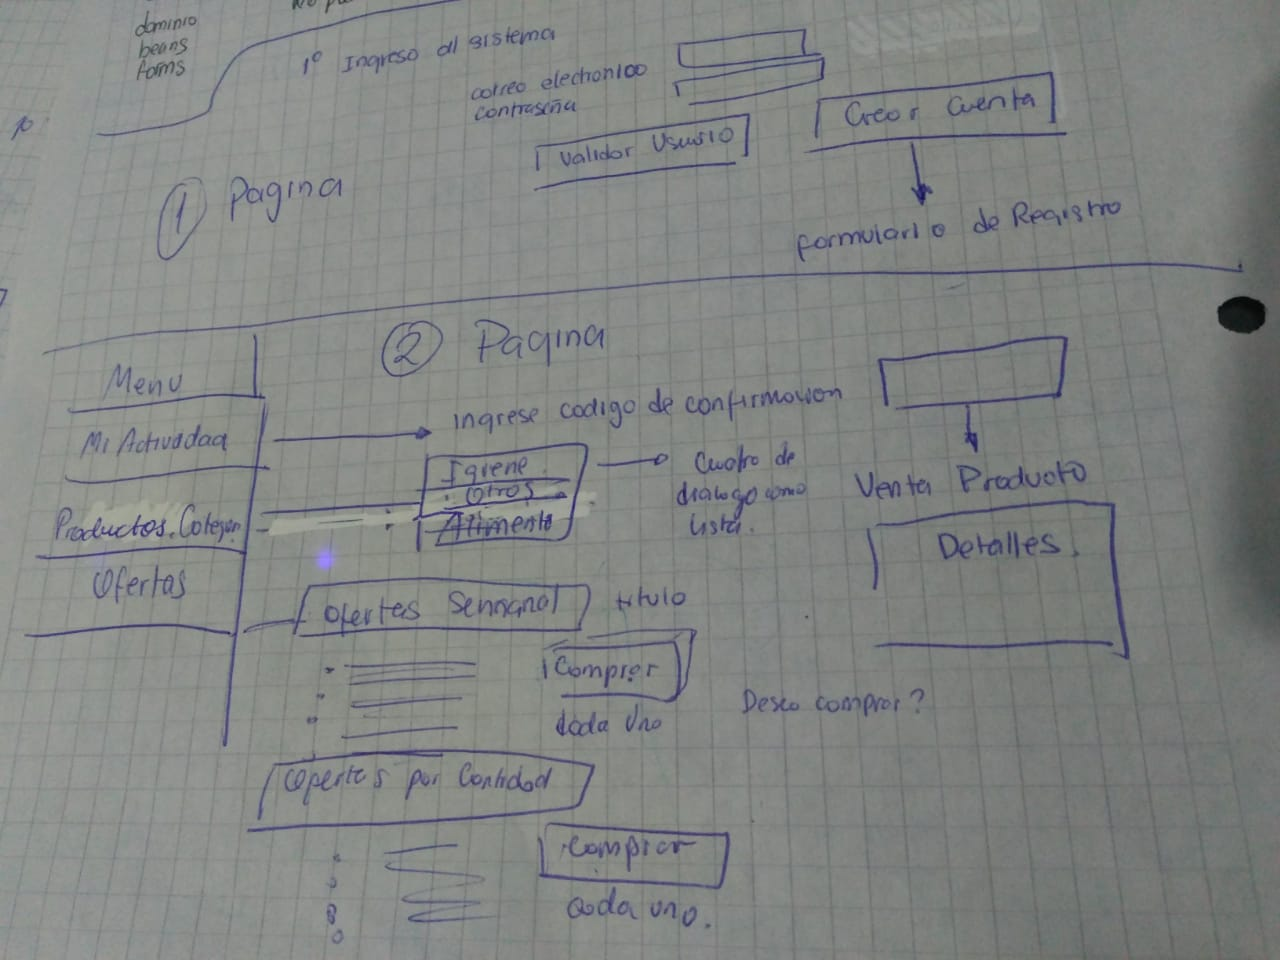 dominio
beans
forms
1º Ingreso al sistema
correo electronico
contraseña
Validar Usuario
Crear Cuenta
formulario de Registro
1 Pagina
2 Pagina
Menu
Mi Actividad
Productos.
Ofertas
ingrese codigo de confirmacion
Otros
Alimento
Cuadro de
dialogo como
lista.
Venta Producto
Detalles.
Ofertas Semanal
titulo
Comprar
cada uno
Deseo comprar?
Ofertas por Cantidad
Comprar
cada uno.